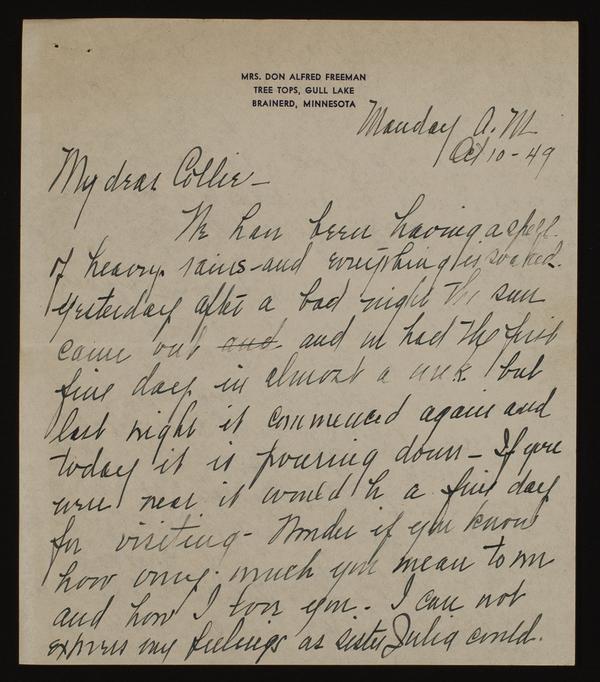 MRS. DON ALFRED FREEMAN
TREE TOPS, GULL LAKE
BRAINERD, MINNESOTA
Monday A.M.
Oct 10-49
My dear Collie-
We have been having a spell
of heavy rains-and everything is soaked.
Yesterday after a bad night the sun
came out and and we had the first
fine day in almost a week but
last night it commenced again and
today it is pouring down- If you
were near it would be a fine day
for visiting- Wonder if you know
how very much you mean to me
and how I love you. I can not
express my feelings as sister Julia could.